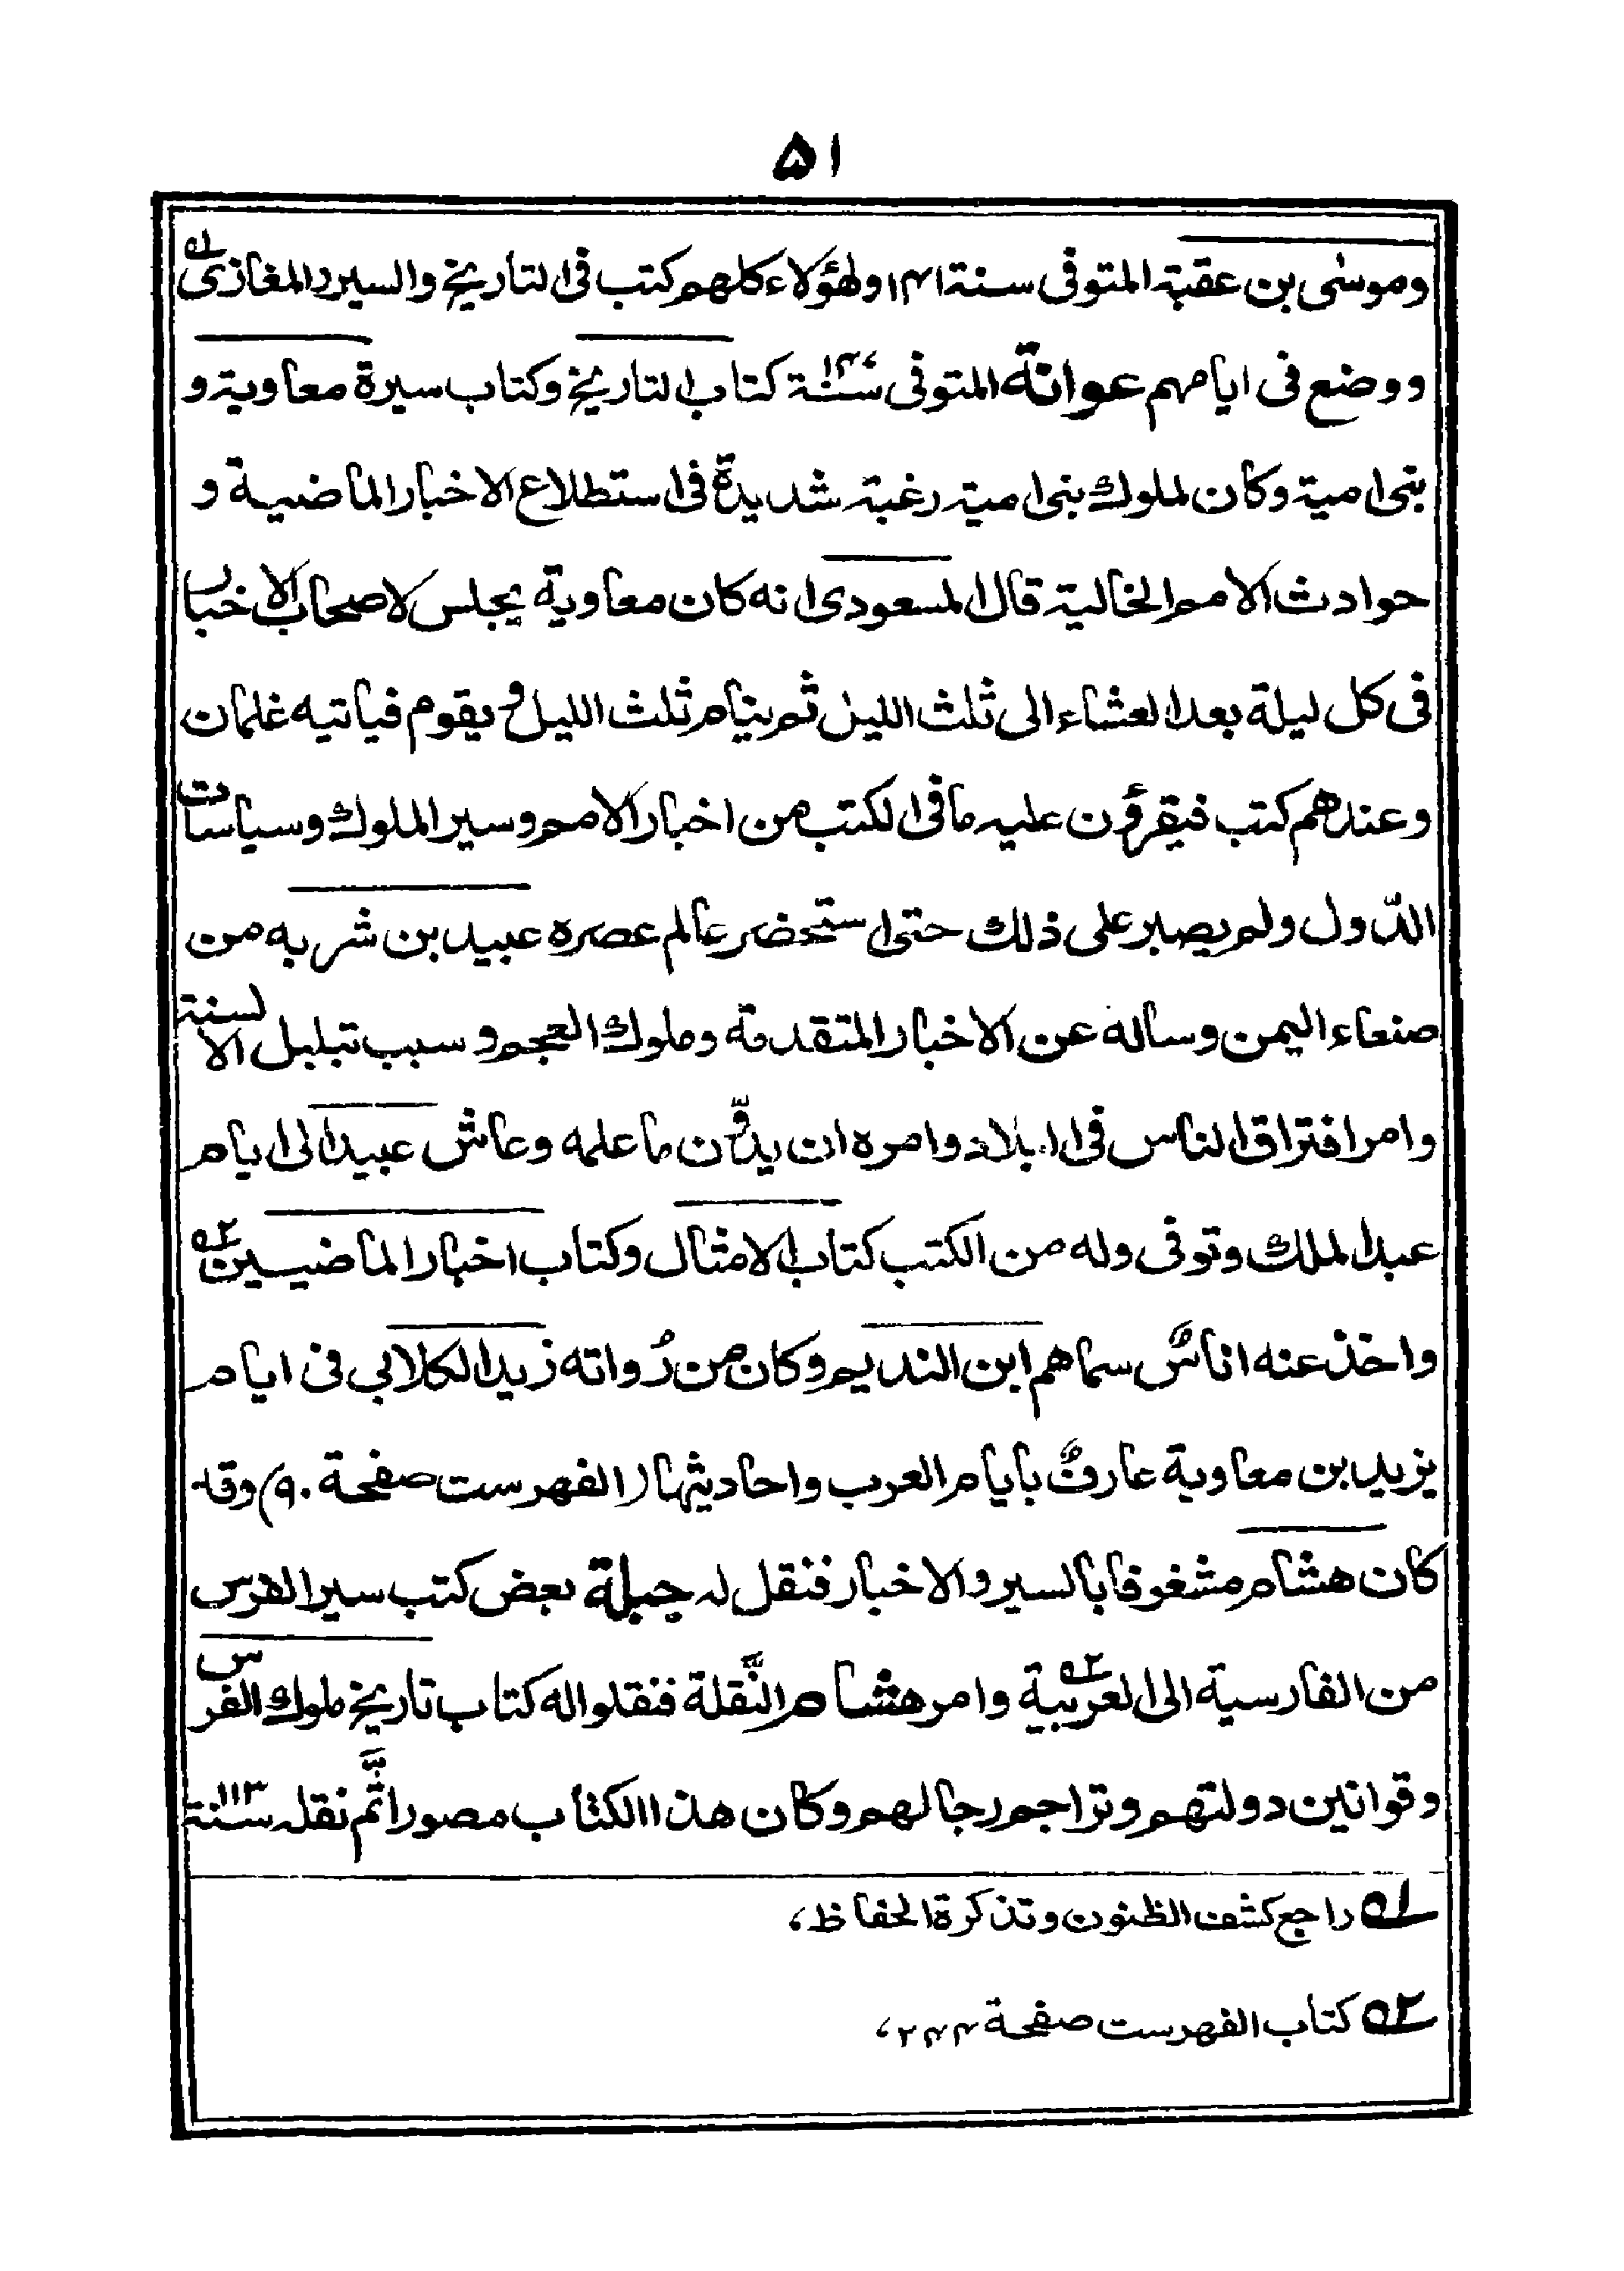 ۵۱
وموسٰى بن عقبة المتوفى سنة ۱۴۱ ولهؤلاء كلهم كتب فى التاريخ والسير والمغازى ۱ه
ووضع فى ايامهم عوانة المتوفى سنة ۱۴۷ كتاب التاريخ وكتاب سيرة معاوية و
بنى امية وكان لملوك بنى امية رغبة شديدة فى استطلاع الاخبار الماضية و
حوادث الامم الخالية قال المسعودى انه كان معاوية يجلس لاصحاب الاخبار
فى كل ليلة بعد العشاء الى ثلث الليل ثم ينام ثلث الليل و يقوم فياتيه غلمان
وعندهم كتب فيقرؤن عليه ما فى الكتب من اخبار الامم وسير الملوك وسياسات
الدّول ولم يصبر على ذلك حتى استحضر عالم عصره عبيد بن شربه من
صنعاء اليمن وساله عن الاخبار المتقدمة وملوك العجم و سبب تبلبل الالسنة
وامر افتراق الناس فى البلاد وامره ان يدوّن ما علمه وعاش عبيد الى ايام
عبد الملك وتوفى وله من الكتب كتاب الامثال وكتاب اخبار الماضيين ۲ه
واخذ عنه اناسٌ سماهم ابن النديم وكان من رُواته زيد الكلابي فى ايام
يزيد بن معاوية عارفٌ بايام العرب واحاديثها (الفهرست صفحة ۹۰) وقد
كان هشام مشغوفا بالسير والاخبار فنقل له جبلة بعض كتب سير الفرس
من الفارسية الى العربية ۲ه وامر هشام النَّقلة فنقلوا له كتاب تاريخ ملوك الفرس
وقوانين دولتهم وتراجم رجالهم وكان هذا الكتاب مصورا ثَّم نقله سنة ۱۱۳
۱ه راجع كشف الظنون وتذكرة الحفاظ،
۲ه كتاب الفهرست صفحة ۲۴۴،